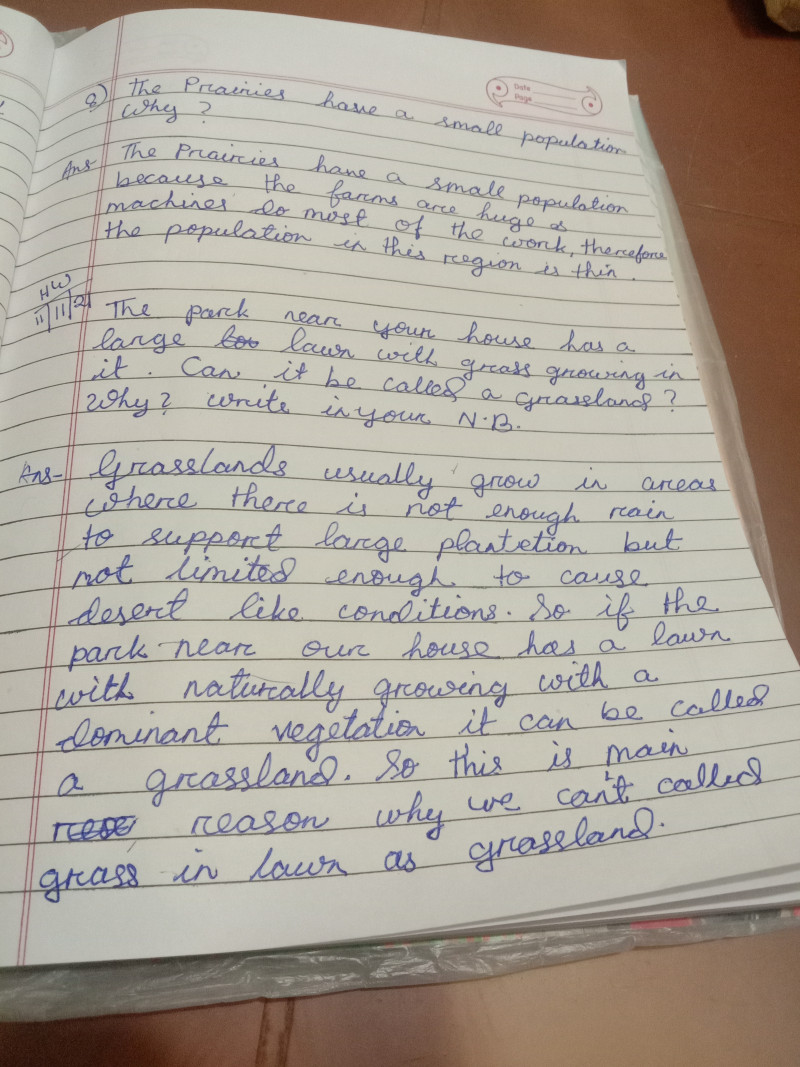 Date
Page
8) The Prairies have a small population
Why ?
Ans- The Prairies have a small population
because the farms are huge &
machines do most of the work, therefore
the population in this region is thin.
HW
11/11/21
The park near your house has a
large lawn with grass growing in
it. Can it be called a grassland?
Why? write in your N.B.
Ans- Grasslands usually grow in areas
where there is not enough rain
to support large plantetion but
not limited enough to cause
desert like conditions. So if the
park near our house has a lawn
with naturally growing with a
dominant vegetation it can be called
a grassland. So this is main
reason why we can't called
grass in lawn as grassland.